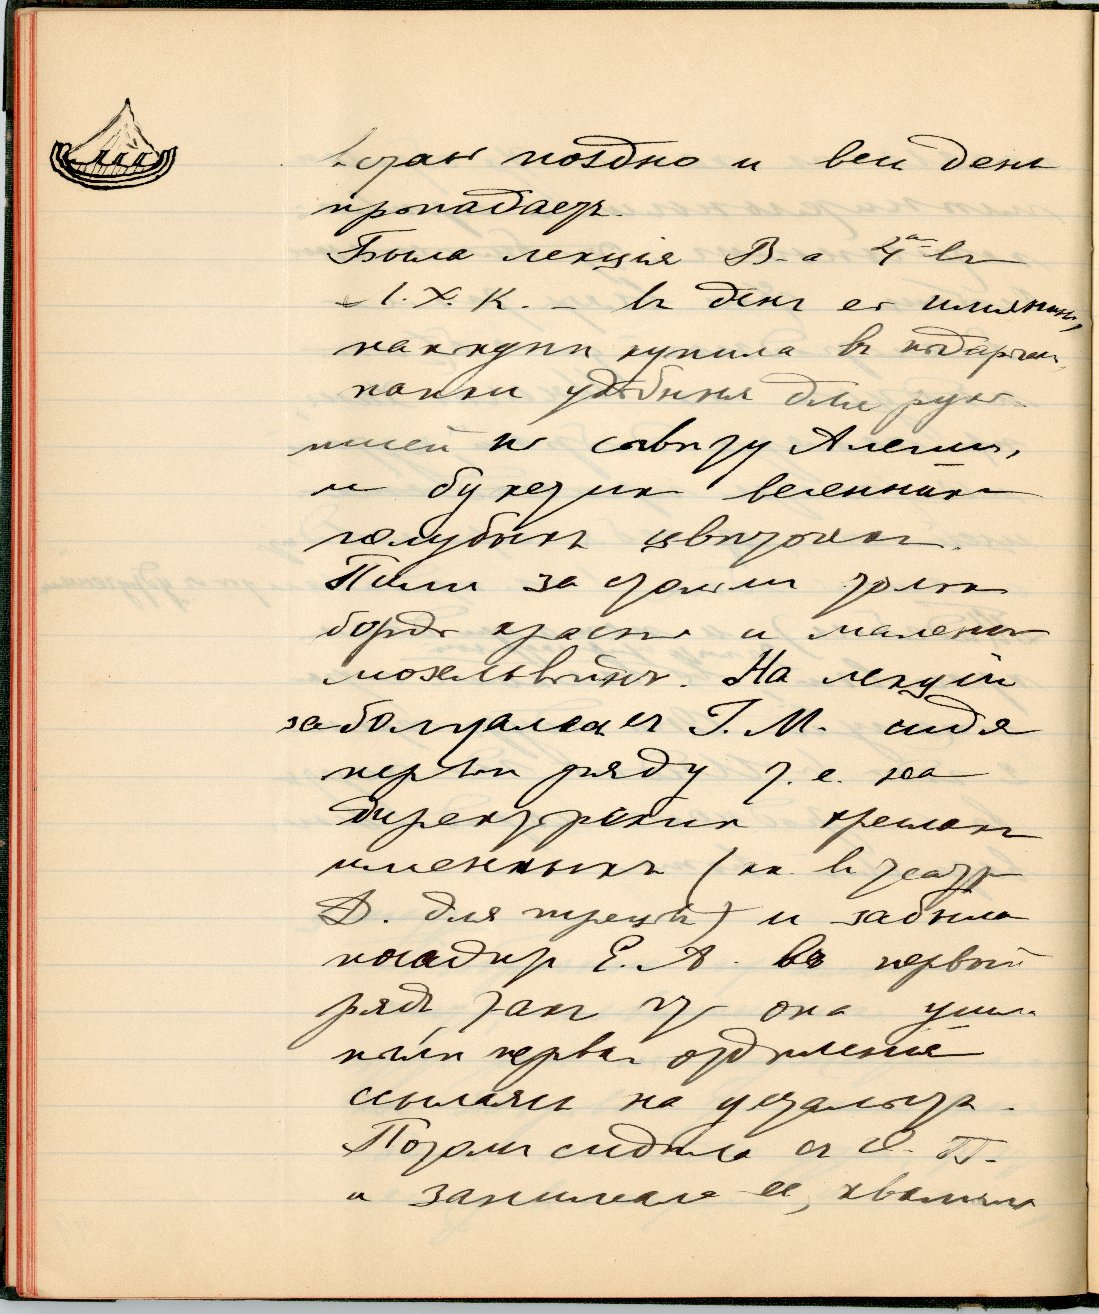 встаю поздно и весь день
пропадаетъ.
Была лекція В-а 4ая въ
Л.Х.К. – въ день ея именинъ,
наканун купила въ подарокъ
папки удобныя для руко-
писей по совѣту Алеши,
и букетик весеннихъ
голубыхъ цвѣточковъ.
Пили за столомъ только
бордо красное и маленькое
мозельвейнъ. На лекціи
заболталась съ Г.М. сидя
первом ряду т.е. на
директорскихъ креслахъ
именныхъ (как въ театр
Д. для) и забыла
посадить Е.А. въ первый
рядъ такъ что она ушла
послѣ первого отдѣленія
ссылаясь на усталость.
Потомъ сидѣла съ О. П.
и занимала ее, хвалила